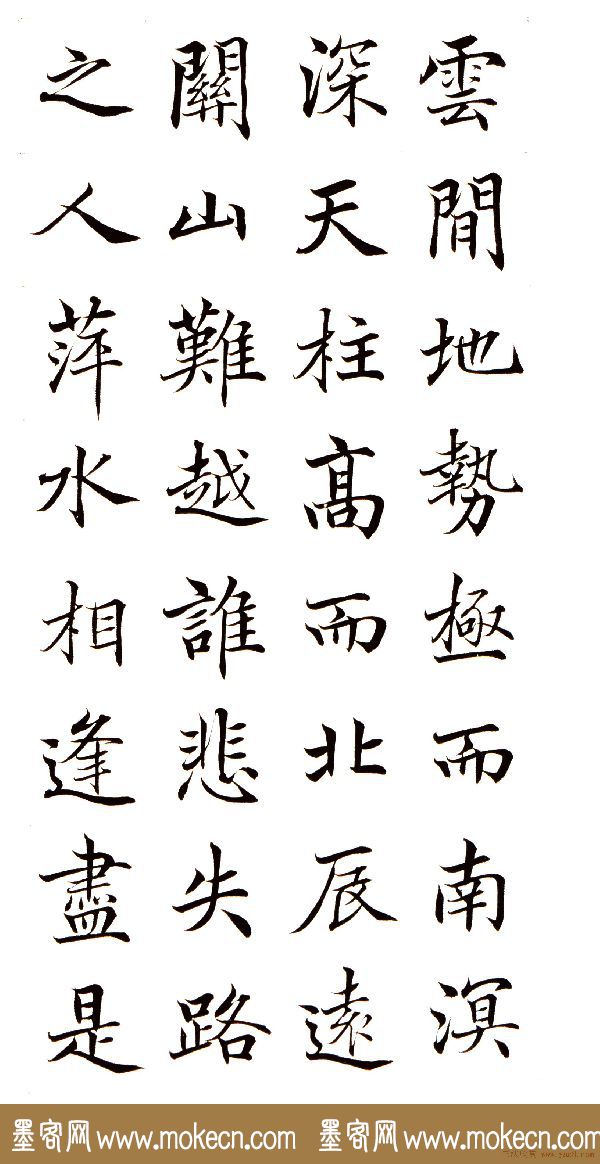 雲間地勢極而南溟
深天柱高而北辰遠
關山難越誰悲失路
之人萍水相逢盡是
墨客网 www.mokecn.com 墨客网 www.mokecn.com